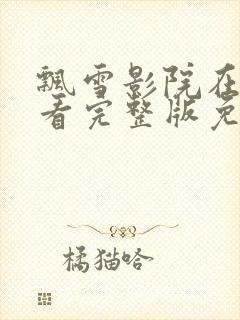 飘雪影院在
看完整版免
橘猫哈